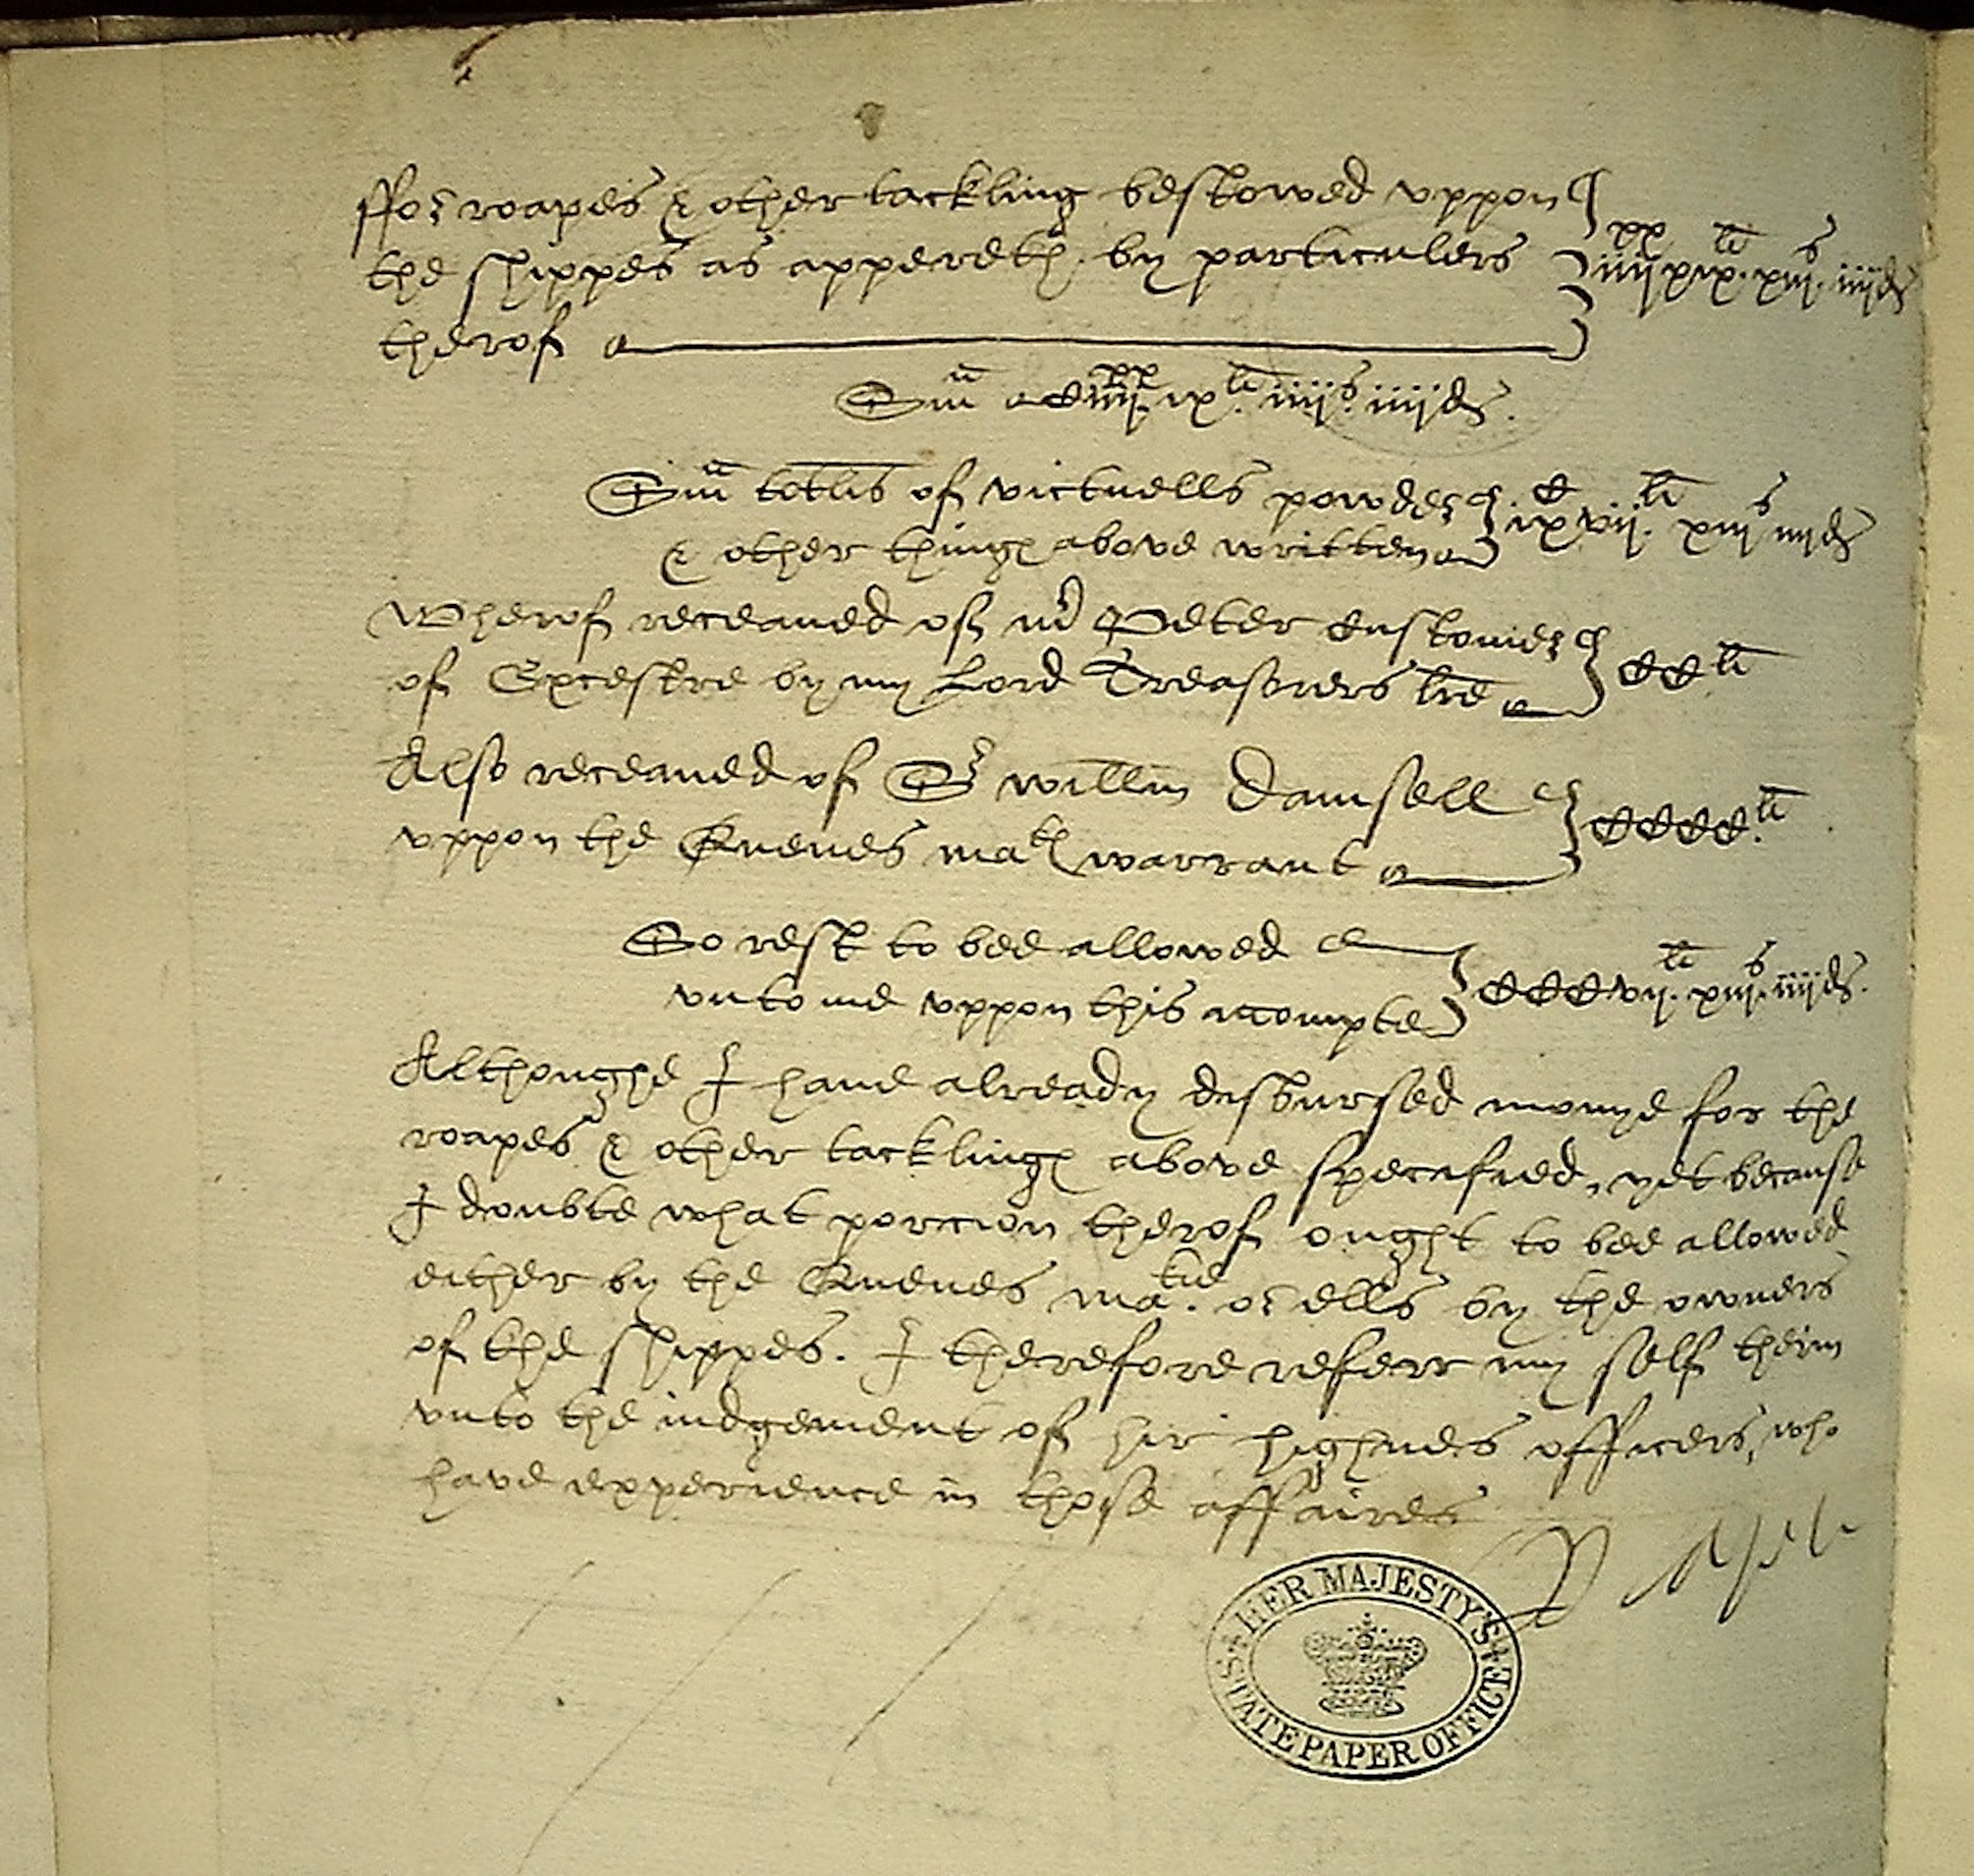 ffor roapes & other tackling bestowed vppon
the shippes as appereth by particulers
therof
iiij^xx xix^li. xiij^s. iiijd
Sm^a CCiiij^xx. ix^li. iiij^s. iiijd.
Sm^a totlis of victuells powder
& other thinges above written
ix^C vij^li. xiij^s iiijd
Wherof receaued of m^r Peter Customer
of Excestre by my Lord Treasorers lre
CC^li
Also receaued of S^r willm Damsell
vppon the Quenes ma^tes warrant
CCCC^li.
So rest to bee allowed
vnto me vppon this accompte
CCCvij^li. xiij^s. iiijd.
Althoughe I haue already disbursed monye for the
roapes & other tacklinges above specified, yet because
I doubte what porcion therof ought to bee allowed
either by the Quenes ma^tie. or ells by the owners
of the shippes. I therefore referr my self therin
vnto the iudgement of hir highnes officers, who
have experience in those affaires
HER MAJESTY'S
STATE PAPER OFFICE